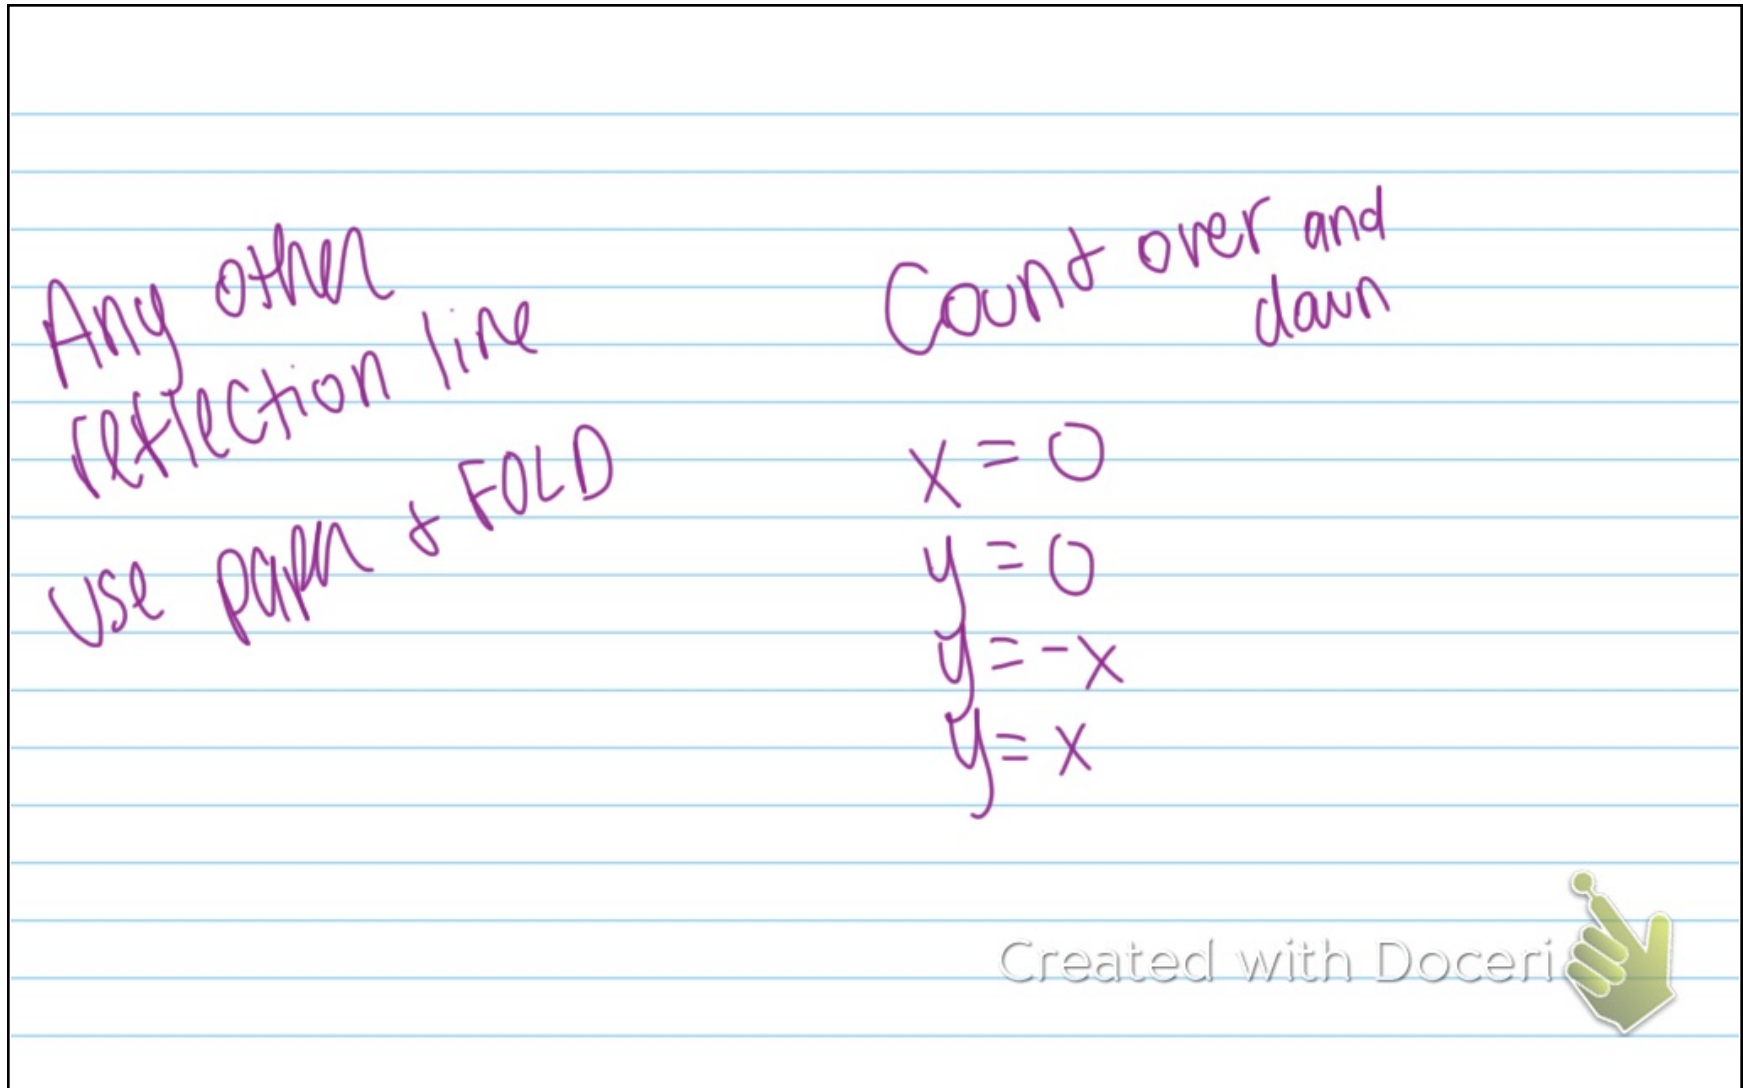 Any other
reflection line
use paper & FOLD
Count over and
down
x = 0
y = 0
y = -x
y = x
Created with Doceri